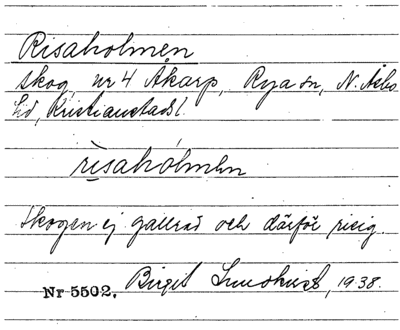 Risaholmen
skog, nr 4 Åkarp, Rya sn, N. Åsbo
hd, Kristianstads l.
risahólmən
Skogen ej gallrad och därför risig.
Nr 5502. Birgit Lindkvist, 1938.